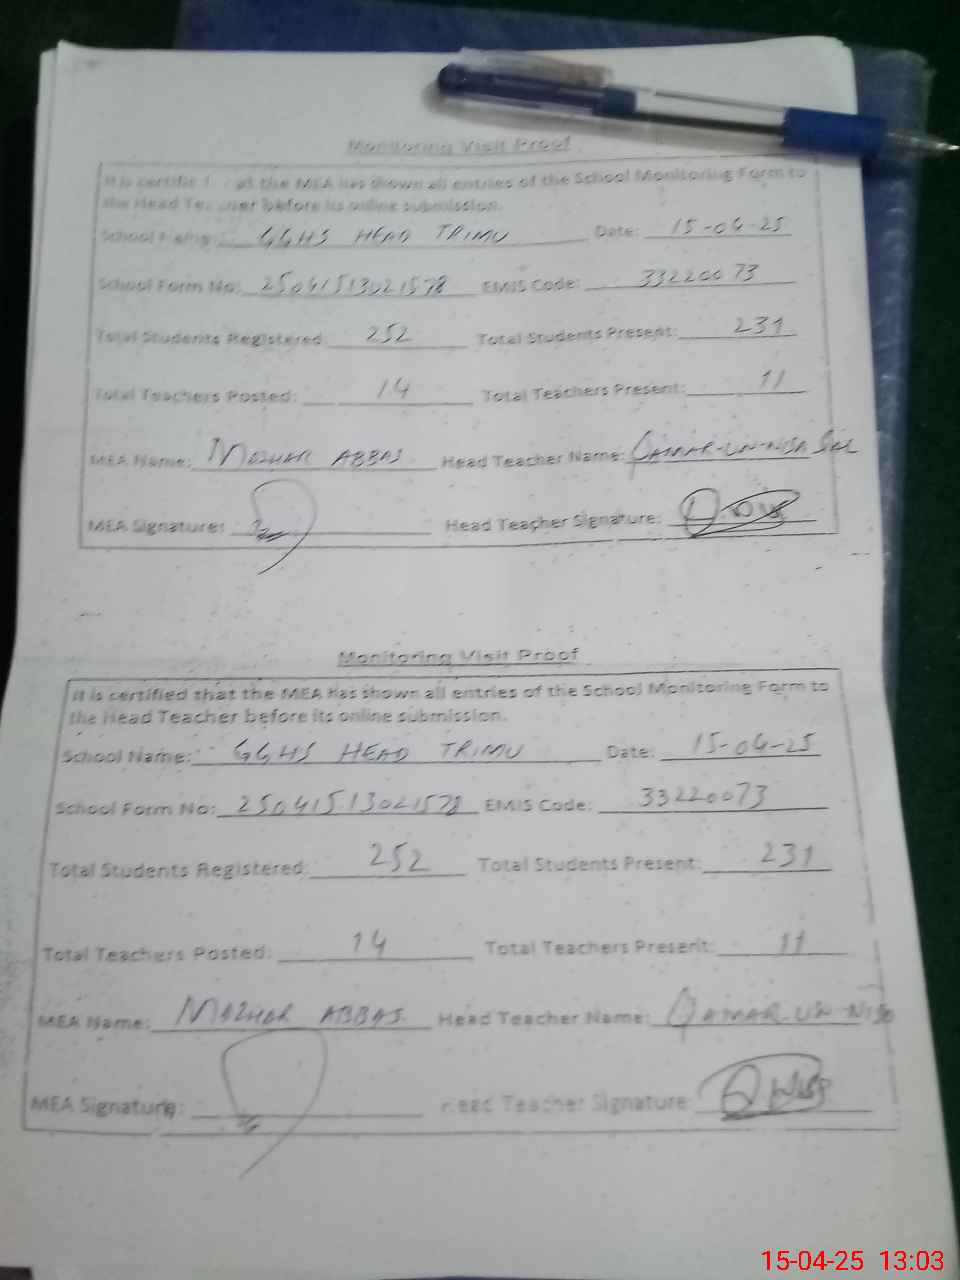 Monitoring Visit Proof
It is certified at the MEA has shown all entries of the School Monitoring Form to
the Head Teacher before its online submission.
School Name: GGHS HEAD TRIMU Date: 15-04-25
School Form No: 25041513021578 EMIS Code: 33220073
Total Students Registered 252 Total Students Present: 231
Total Teachers Posted: 14 Total Teachers Present: 11
MEA Name: MAZHAR ABBAS Head Teacher Name: QAMAR-UN-NISA
MEA Signature: Head Teacher Signature:
Monitoring Visit Proof
It is certified that the MEA has shown all entries of the School Monitoring Form to
the Head Teacher before its online submission.
School Name: GGHS HEAD TRIMU Date: 15-04-25
School Form No: 25041513021578 EMIS Code: 33220073
Total Students Registered: 252 Total Students Present: 231
Total Teachers Posted: 14 Total Teachers Present: 11
MEA Name: MAZHAR ABBAS Head Teacher Name: QAMAR-UN-NISA
MEA Signature: Head Teacher Signature
15-04-25 13:03